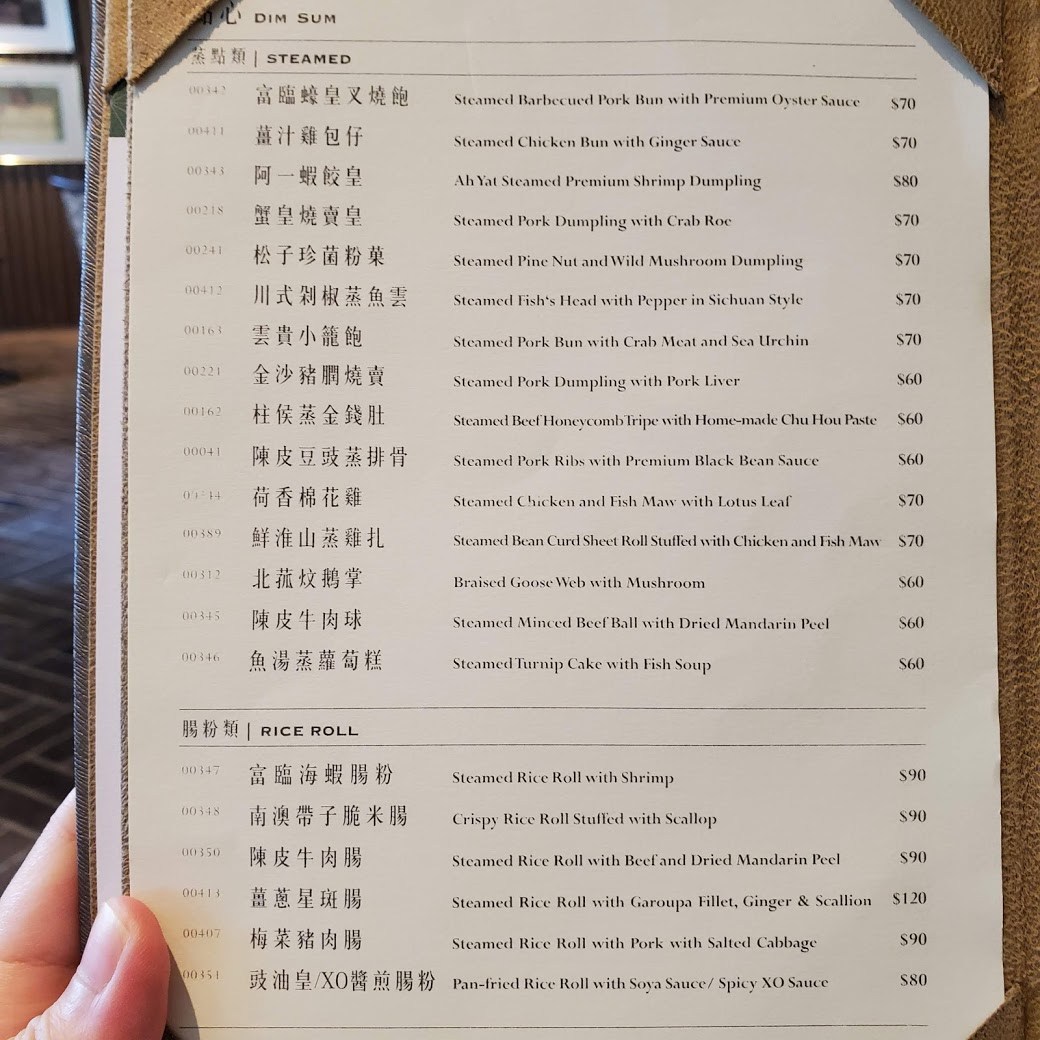 點心 DIM SUM
蒸點類 | STEAMED
00342 富臨蠔皇叉燒飽 Steamed Barbecued Pork Bun with Premium Oyster Sauce $70
00411 薑汁雞包仔 Steamed Chicken Bun with Ginger Sauce $70
00343 阿一蝦餃皇 Ah Yat Steamed Premium Shrimp Dumpling $80
00218 蟹皇燒賣皇 Steamed Pork Dumpling with Crab Roe $70
00241 松子珍菌粉菓 Steamed Pine Nut and Wild Mushroom Dumpling $70
00412 川式剁椒蒸魚雲 Steamed Fish's Head with Pepper in Sichuan Style $70
00163 雲貴小籠飽 Steamed Pork Bun with Crab Meat and Sea Urchin $70
00221 金沙豬膶燒賣 Steamed Pork Dumpling with Pork Liver $60
00162 柱侯蒸金錢肚 Steamed Beef Honeycomb Tripe with Home-made Chu Hou Paste $60
00041 陳皮豆豉蒸排骨 Steamed Pork Ribs with Premium Black Bean Sauce $60
荷香棉花雞 Steamed Chicken and Fish Maw with Lotus Leaf $70
00389 鮮淮山蒸雞扎 Steamed Bean Curd Sheet Roll Stuffed with Chicken and Fish Maw $70
00312 北菰炆鵝掌 Braised Goose Web with Mushroom $60
00345 陳皮牛肉球 Steamed Minced Beef Ball with Dried Mandarin Peel $60
00346 魚湯蒸蘿蔔糕 Steamed Turnip Cake with Fish Soup $60
腸粉類 | RICE ROLL
00347 富臨海蝦腸粉 Steamed Rice Roll with Shrimp $90
00348 南澳帶子脆米腸 Crispy Rice Roll Stuffed with Scallop $90
00350 陳皮牛肉腸 Steamed Rice Roll with Beef and Dried Mandarin Peel $90
00413 薑蔥星斑腸 Steamed Rice Roll with Garoupa Fillet, Ginger & Scallion $120
00407 梅菜豬肉腸 Steamed Rice Roll with Pork with Salted Cabbage $90
00351 豉油皇/XO醬煎腸粉 Pan-fried Rice Roll with Soya Sauce/ Spicy XO Sauce $80